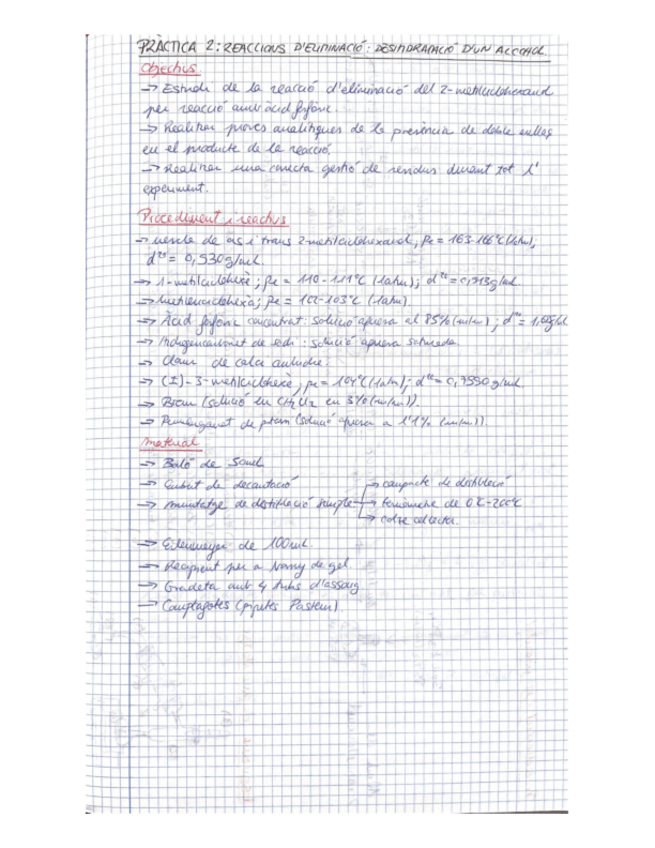 PRÀCTICA 2: REACCIONS D'ELIMINACIÓ: DESHIDRATACIÓ D'UN ALCOHOL
Objectius
→ Estudi de la reacció d'eliminació del 2-metilciclohexanol
per reacció amb àcid fosfòric.
→ Realitzar proves analítiques de la presència de doble enllaç
en el producte de la reacció.
→ Realitzar una correcta gestió de residus durant tot l'
experiment.
Procediment i reactius
→ mescla de cis i trans 2-metilciclohexanol, Pe = 163-166°C (1atm),
d²⁰ = 0,930g/mL
→ 1-metilciclohexè; Pe = 110-111°C (1atm); d²⁰ = 0,813g/mL
→ metilenciclohexà; Pe = 102-103°C (1atm).
→ Àcid fosfòric concentrat: solució aquosa al 85% (m/m); d²⁰ =
→ Hidrogencarbonat de sodi: solució aquosa saturada.
→ Clorur de calci anhidre.
→ (±)-3-metilciclohexè, pe = 104°C (1atm); d²⁰ = 0,7990 g/mL
→ Brom (solució en CH₂Cl₂ en 3% (m/m)).
→ Permanganat de potassi (solució aquosa a l'1% (m/m)).
material
→ Baló de 50mL
→ Embut de decantació
→ muntatge de destil·lació simple → campana de destil·lació
→ termòmetre de 0°C-200°C
→ colze col·lector.
→ Erlenmeyer de 100mL
→ Recipient per a bany de gel.
→ Gradeta amb 4 tubs d'assaig
→ Comptagotes (pipetes Pasteur).